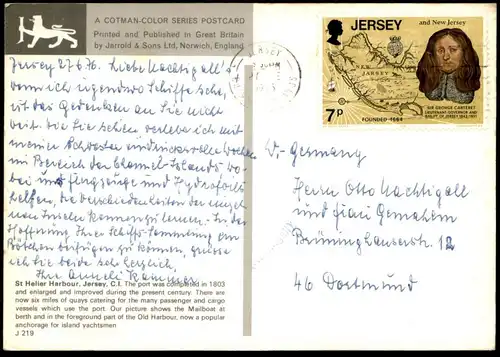 A COTMAN-COLOR SERIES POSTCARD
Printed and Published in Great Britain
by Jarrold & Sons Ltd, Norwich, England
Jersey 27.6.76. Liebe Nachtigall's!
wenn ich irgendwo Schiffe sehe,
ist das Gedenken an Sie nicht
weit. Wie Sie sehen, verlebe ich mit
meiner Schwester eindrucksvolle Wochen
im Bereich der Channel-Islands, wo-
bei uns Flugzeuge und Hydrofoils
helfen, die Verschiedenheiten der
Inseln kennenzulernen. In der
Hoffnung, Ihre Schiffs-Sammlung um
können, grüsse
ich Sie beide sehr herzlich.
Ihre Anneli
St Helier Harbour, Jersey, C.I. The port was completed in 1803
and enlarged and improved during the present century. There are
now six miles of quays catering for the many passenger and cargo
vessels which use the port. Our picture shows the Mailboat at
berth and in the foreground part of the Old Harbour, now a popular
anchorage for island yachtsmen
J 219
JERSEY
and New Jersey
NEW
JERSEY
SIR GEORGE CARTERET
LIEUTENANT-GOVERNOR AND
BAILIFF OF JERSEY 1643-1651
7p
FOUNDED 1664
JERSEY
W.-Germany
Herrn Otto Nachtigall
und Frau Gemahlin
Brünninghauserstr. 12
46 Dortmund